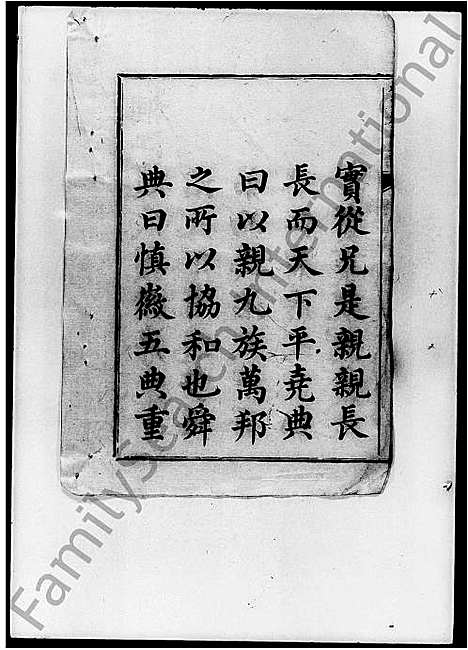 實從兄是親親長
長而天下平堯典
曰以親九族萬邦
之所以協和也舜
典曰慎徽五典重
FamilySearch International